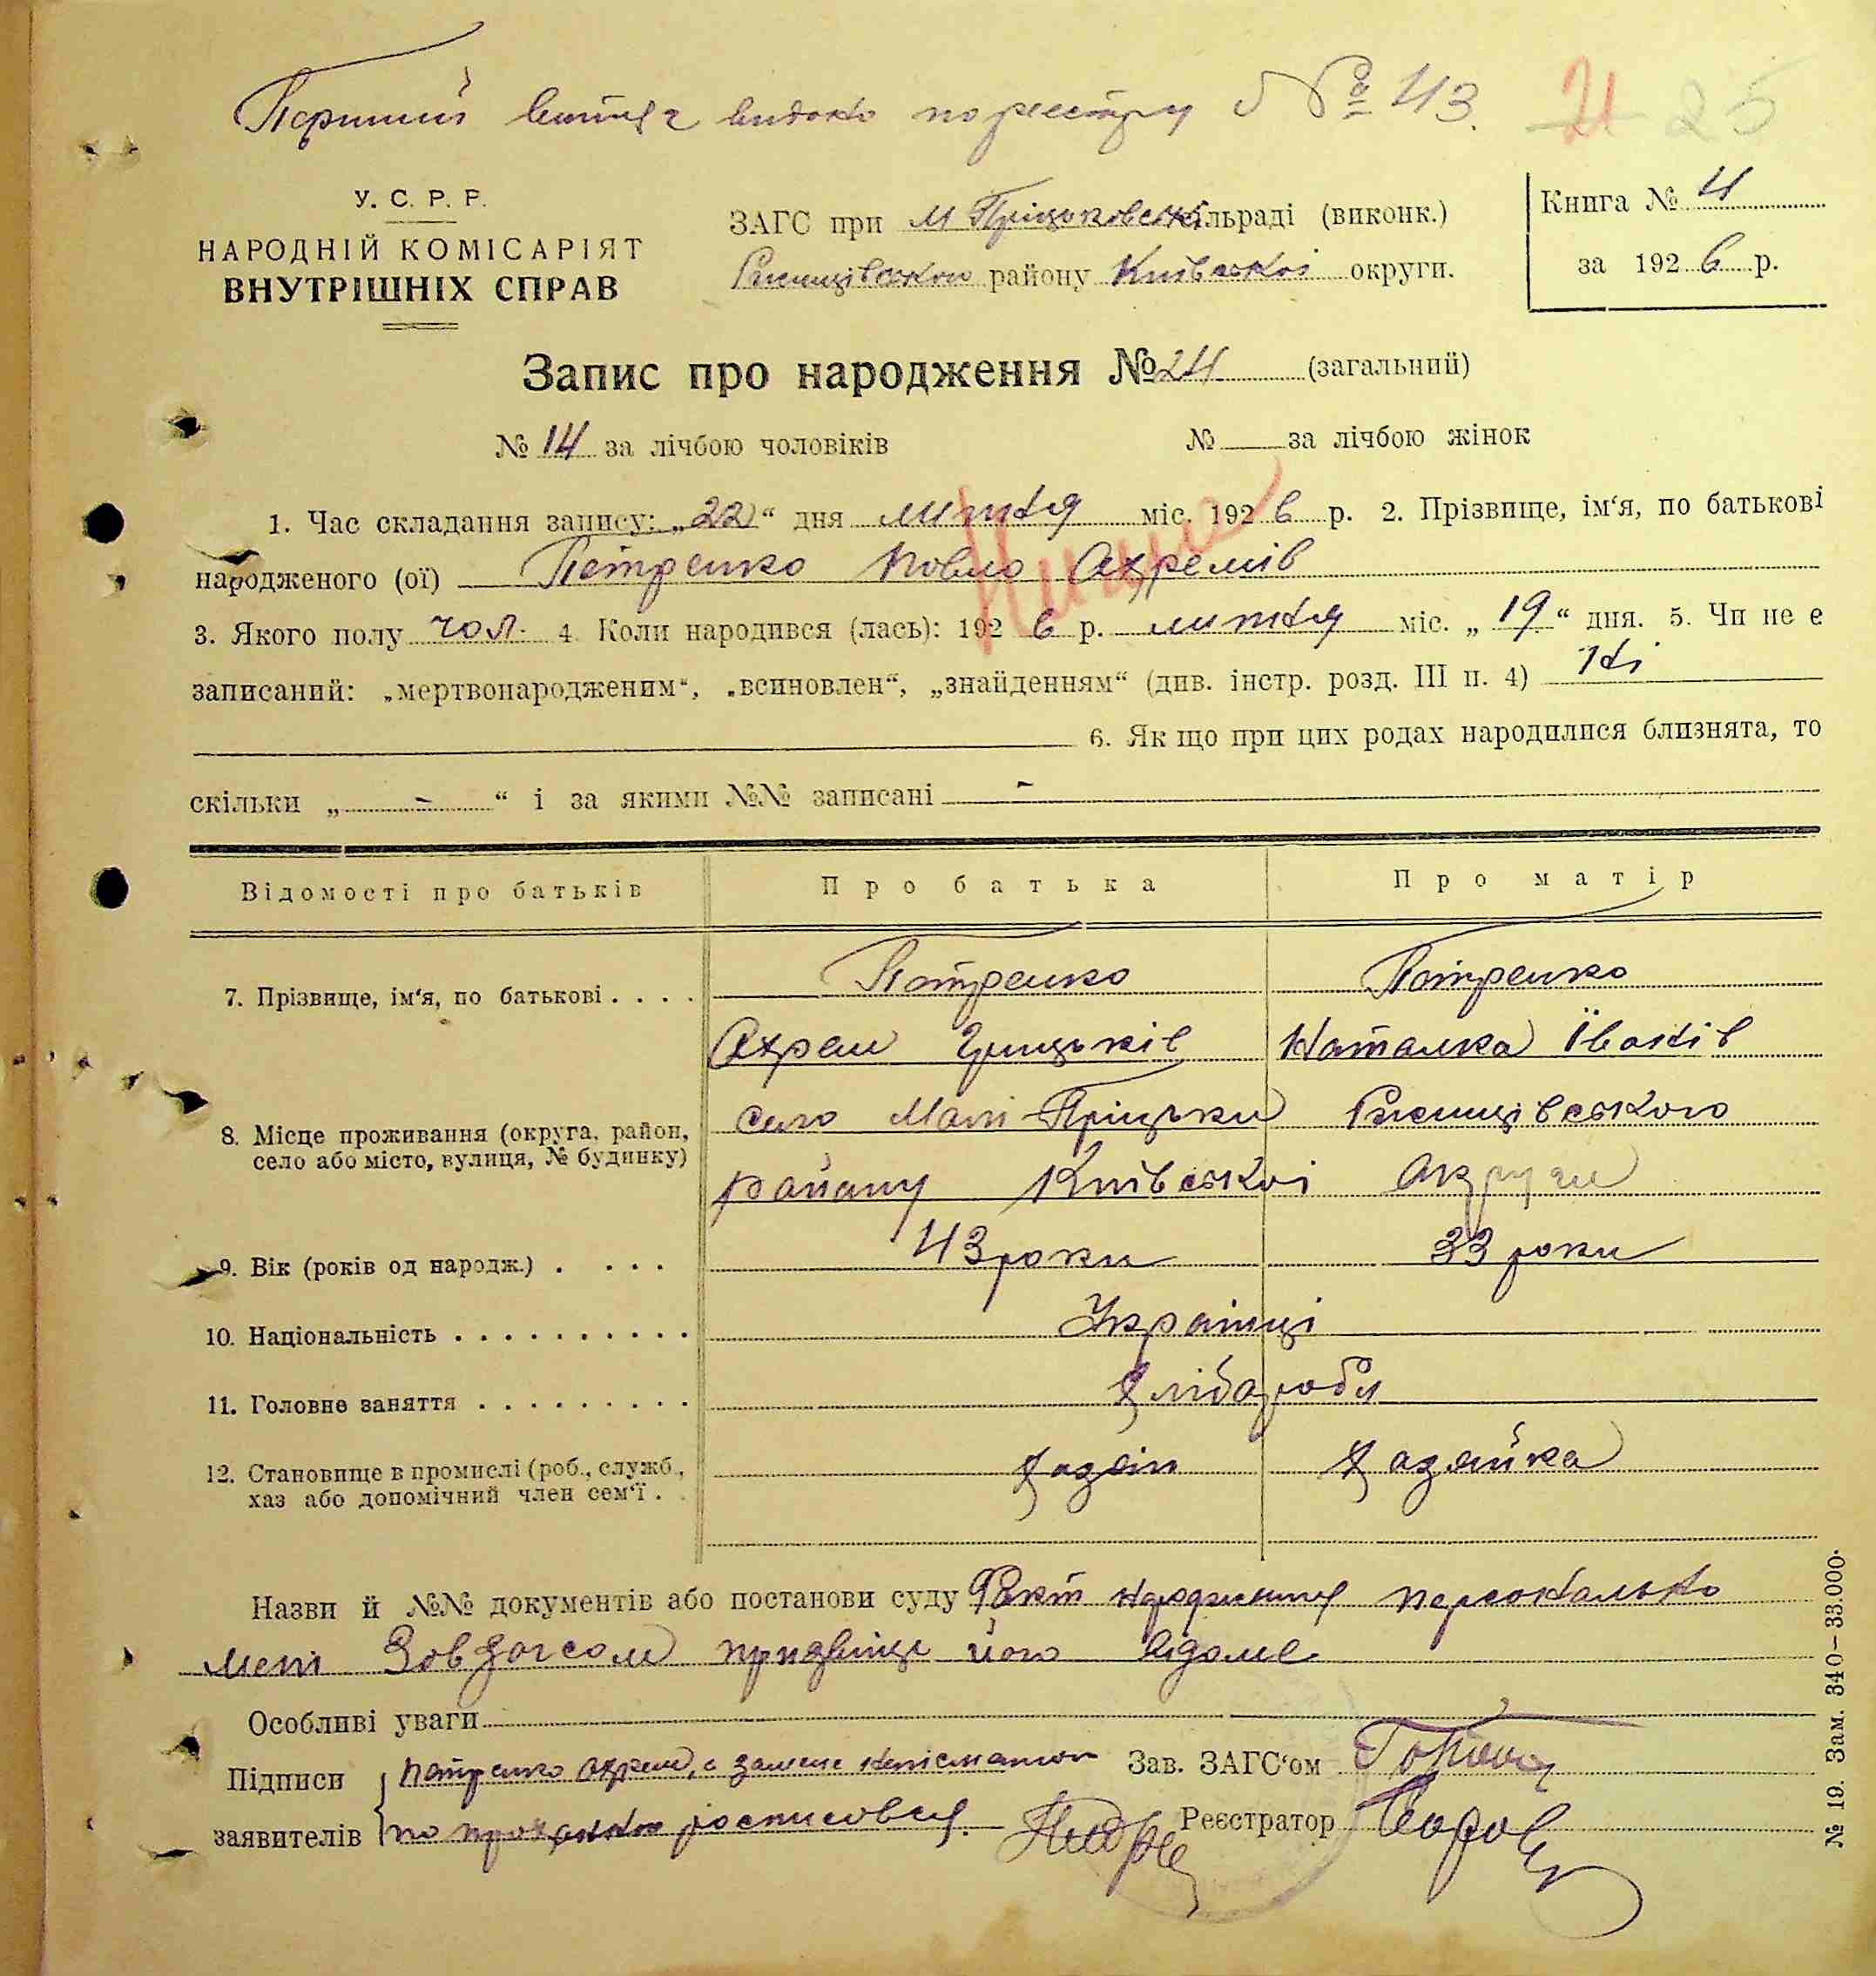 Перший витяг видано по реєстру № 43. 21 25
У. С. Р. Р.
НАРОДНІЙ КОМІСАРІЯТ
ВНУТРІШНІХ СПРАВ
ЗАГС при М Пріцьковській сільраді (виконк.)
Ржищівського району Київської округи.
Книга № 4
за 1926 р.
Запис про народження № 24 (загальний)
№ 14 за лічбою чоловіків № за лічбою жінок
1. Час складання запису: „22“ дня липня міс. 1926 р. 2. Прізвище, ім‘я, по батькові
народженого (ої) Петренко Павло Ахремів
3. Якого полу чол. 4. Коли народився (лась): 1926 р. липня міс. „19“ дня. 5. Чи не є
записаний: „мертвонародженим“, „всиновлен“, „знайденням“ (див. інстр. розд. III п. 4) Ні
6. Як що при цих родах народилися близнята, то
скільки „ - “ і за якими №№ записані -
Відомості про батьків Про батька Про матір
7. Прізвище, ім‘я, по батькові . . . . Петренко Петренко
Ахрем Грицьків Наталка Іванів
8. Місце проживання (округа, район, село або місто, вулиця, № будинку) село Малі Пріцьки Ржищівського
району Київської округи
9. Вік (років од народж.) . . . . 43 роки 33 роки
10. Національність . . . . . . . . . . Українці
11. Головне заняття . . . . . . . . . хлібороби
12. Становище в промислі (роб., служб., хаз або допомічний член сем‘ї . . хазяїн хазяйка
Назви й №№ документів або постанови суду Факт народження персонально
мені Завзагсом прізвище його відоме
Особливі уваги
Підписи Петренко Ахрем, а замене неписьменого Зав. ЗАГС‘ом
заявителів по проханню росписовся. Реєстратор
№ 19. Зам. 340–33.000.